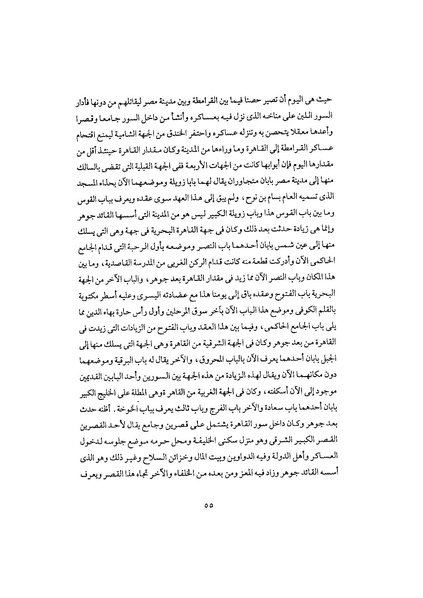 حيث هى اليوم أن تصير حصنا فيما بين القرامطة وبين مدينة مصر ليقاتلهم من دونها فأدار
السور اللبن على مناخه الذى نزل فيه بعساكره وأنشأ من داخل السور جامعا وقصرا
وأعدها معقلا يتحصن به وتنزله عساكره واحتفر الخندق من الجهة الشامية ليمنع اقتحام
عساكر القرامطة إلى القاهرة وما وراءها من المدينة وكان مقدار القاهرة حينئذ أقل من
مقدارها اليوم فإن أبوابها كانت من الجهات الأربعة ففى الجهة القبلية التى تفضى بالسالك
منها إلى مدينة مصر بابان متجاوران يقال لهما بابا زويلة وموضعهما الآن بحذاء المسجد
الذى تسميه العام بسام بن نوح، ولم يبق إلى هذا العهد سوى عقده ويعرف بباب القوس
وما بين باب القوس هذا وباب زويلة الكبير ليس هو من المدينة التى أسسها القائد جوهر
وإنما هى زيادة حدثت بعد ذلك وكان فى جهة القاهرة البحرية فى جهة وهى التى يسلك
منها إلى عين شمس بابان أحدهما باب النصر وموضعه بأول الرحبة التى قدام الجامع
الحاكمى الآن وأدركت قطعة منه كانت قدام الركن الغربى من المدرسة القاصدية، وما بين
هذا المكان وباب النصر الآن مما زيد فى مقدار القاهرة بعد جوهر، والباب الآخر من الجهة
البحرية باب الفتوح وعقده باق إلى يومنا هذا مع عضادته اليسرى وعليه أسطر مكتوبة
بالقلم الكوفى وموضع هذا الباب الآن بآخر سوق المرحلين وأول رأس حارة بهاء الدين مما
يلى باب الجامع الحاكمى، وفيما بين هذا العقد وباب الفتوح من الزيادات التى زيدت فى
القاهرة من بعد جوهر وكان فى الجهة الشرقية من القاهرة وهى الجهة التى يسلك منها إلى
الجبل بابان أحدهما يعرف الآن بالباب المحروق، والآخر يقال له باب البرقية وموضعهما
دون مكانهما الآن ويقال لهذه الزيادة من هذه الجهة بين السورين وأحد البابين القديمين
موجود إلى الآن أسكفته، وكان فى الجهة الغربية من القاهرة وهى المطلة على الخليج الكبير
بابان أحدهما باب سعادة والآخر باب الفرج وباب ثالث يعرف بباب الخوخة. أظنه حدث
بعد جوهر وكان داخل سور القاهرة يشتمل على قصرين وجامع يقال لأحد القصرين
القصر الكبير الشرقى وهو منزل سكنى الخليفة ومحل حرمه موضع جلوسه لدخول
العساكر وأهل الدولة وفيه الدواوين وبيت المال وخزائن السلاح وغير ذلك وهو الذى
أسسه القائد جوهر وزاد فيه المعز ومن بعده من الخلفاء والآخر تجاه هذا القصر ويعرف
٥٥